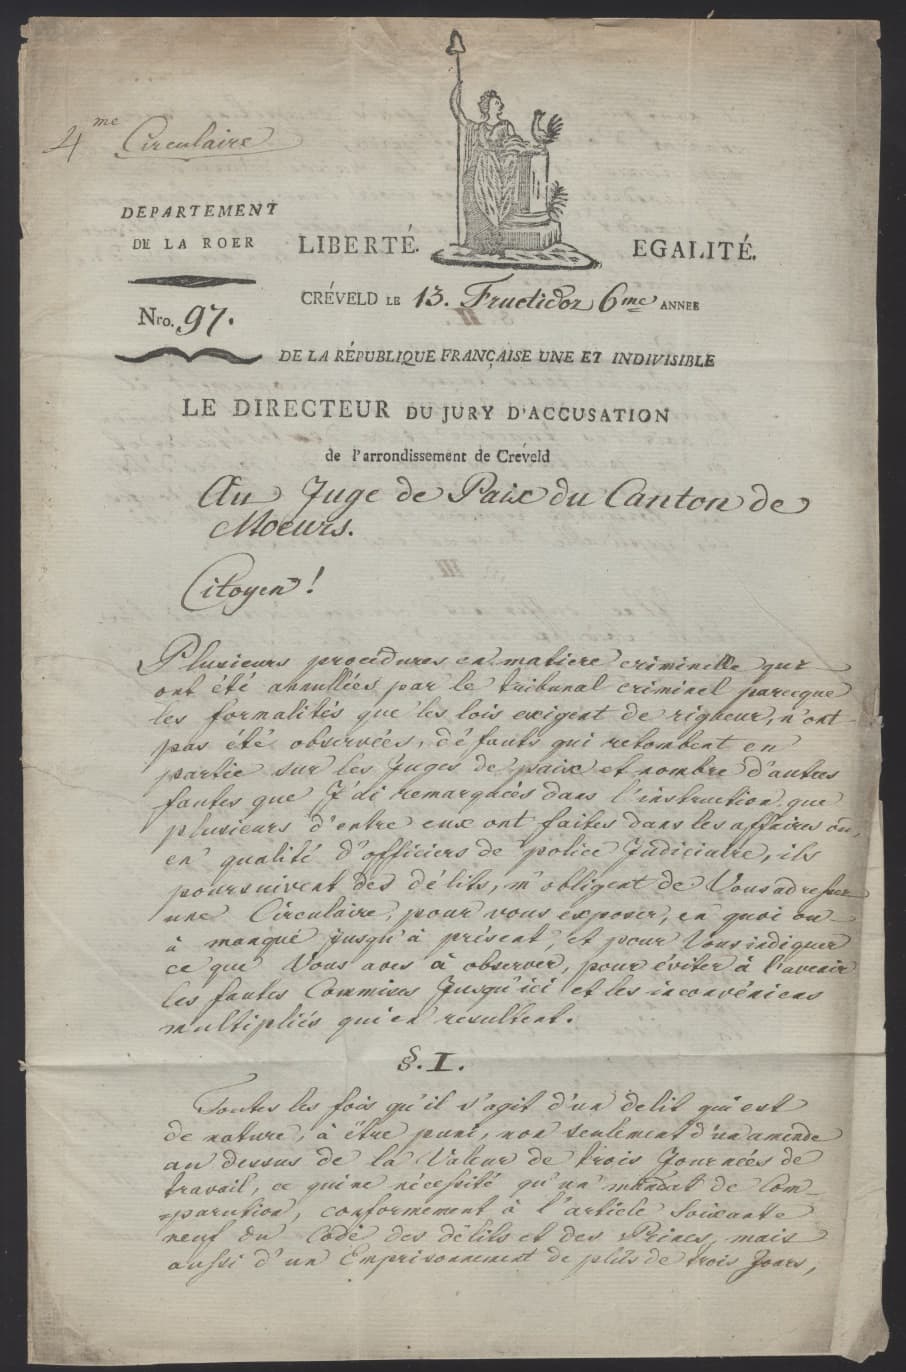 4me Circulaire
DEPARTEMENT
DE LA ROER
LIBERTÉ.
EGALITÉ.
CRÉVELD LE 13. Fructidor 6me ANNEE
Nro. 97.
DE LA RÉPUBLIQUE FRANÇAISE UNE ET INDIVISIBLE
LE DIRECTEUR DU JURY D'ACCUSATION
de l'arrondissement de Creveld
Au Juge de Paix du Canton de
Moeurs.
Citoyen!
Plusieurs procedures en matiere criminelle qui
ont été annullées par le tribunal criminel parceque
les formalités que les lois exigent de rigueur, n'ont
pas été observées, défauts qui retombent en
partie sur les Juges de paix et nombre d'autres
fautes que J'ai remarquées dans l'instruction que
plusieurs d'entre eux ont faites dans les affaires où,
en qualité d'officiers de police Judiciaire, ils
poursuivent des délits, m'obligent de Vous adresser
une Circulaire, pour vous exposer, en quoi on
à manqué jusqu'à présent, et pour Vous indiquer
ce que Vous aves à observer, pour éviter à l'avenir
les fautes Commises Jusqu'ici et les inconvéniens
multipliés qui en resultent.
§. I.
Toutes les fois qu'il s'agit d'un delit qui est
de nature, à être puni, non seulement d'un amende
au dessus de la Valeur de trois Journées de
travail, ce qui ne nécessité qu'un mandat de Com-
=parution, conformement à l'article Soixante
neuf du Code des délits et des Peines, mais
aussi d'un Emprisonnement de plus de trois Jours,